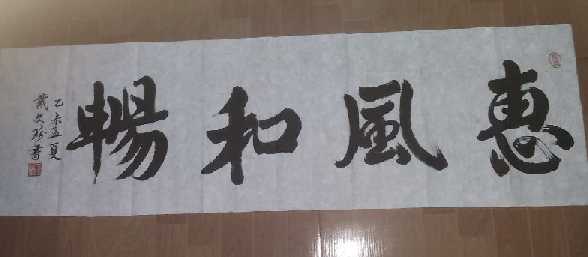 惠風和暢
乙未孟夏
戴文珍書